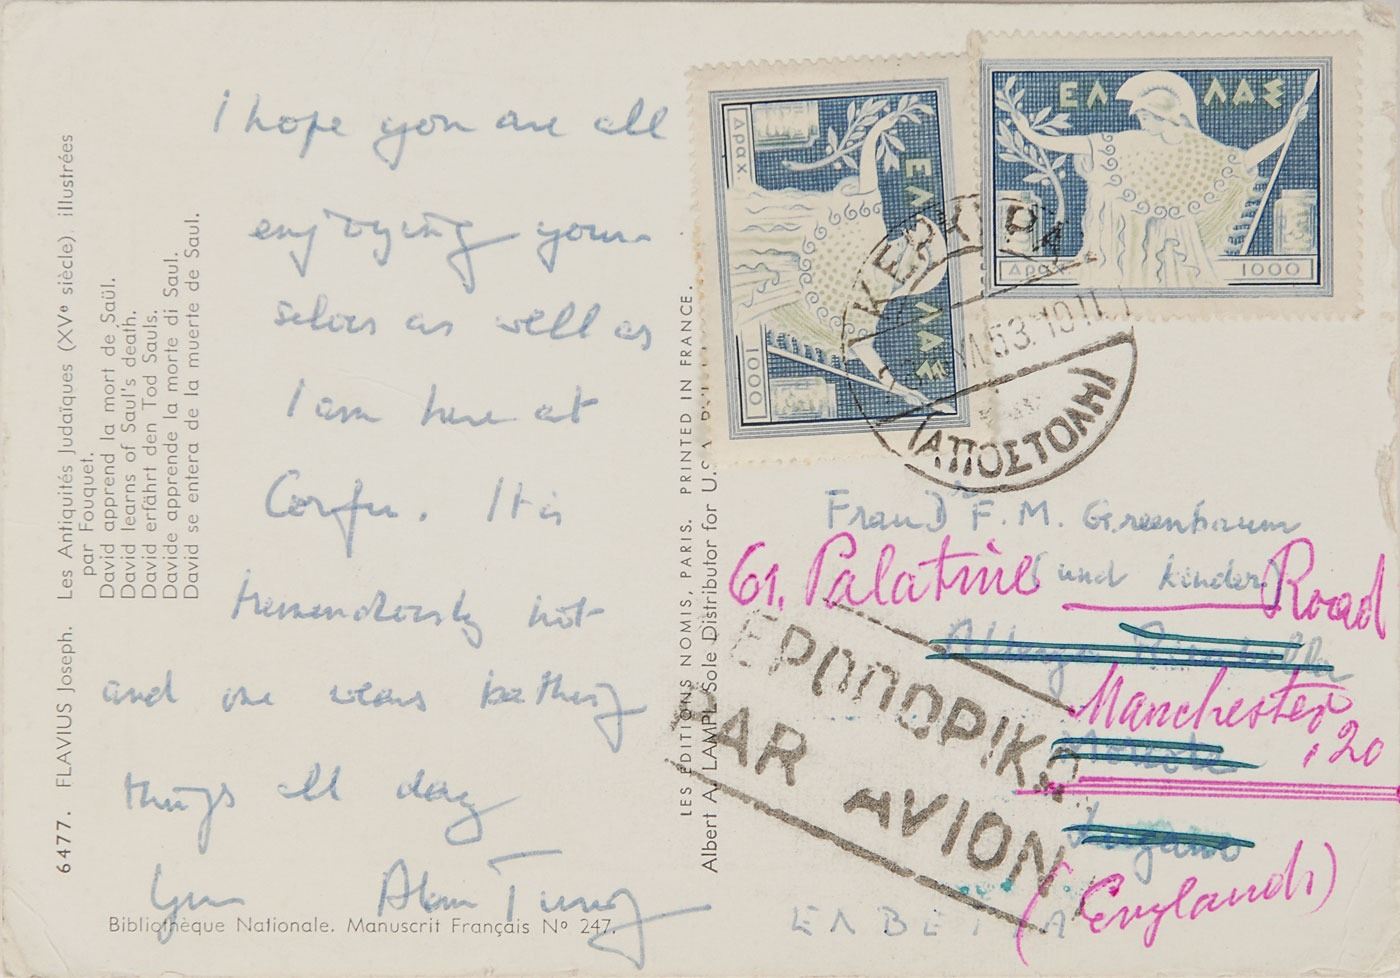 I hope you are all
enjoying your-
selves as well as
I am here at
Corfu. It is
tremendously hot
and one wears bathing
things all day
Yours Alan Turing
6477. FLAVIUS Joseph. Les Antiquités Judaïques (XVe siècle), illustrées
par Fouquet.
David apprend la mort de Saül.
David learns of Saul's death.
David erfährt den Tod Sauls.
Davide apprende la morte di Saul.
David se entera de la muerte de Saul.
Bibliothèque Nationale. Manuscrit Français Nº 247.
LES EDITIONS NOMIS, PARIS. PRINTED IN FRANCE.
Albert A. LAMPL, Sole Distributor for U.S.A.
ΕΛΛΑΣ
Δραχ
1000
ΕΛΛΑΣ
Δραχ
1000
ΚΕΡΚΥΡΑ
53.10
(ΑΠΟΣΤΟΛΗ)
Frau Dr F. M. Greenbaum
(und Kinder)
61, Palatine Road
Manchester, 20
Morcote
Lugano
(England)
ΕΡΟΠΟΡΙΚΩ
PAR AVION